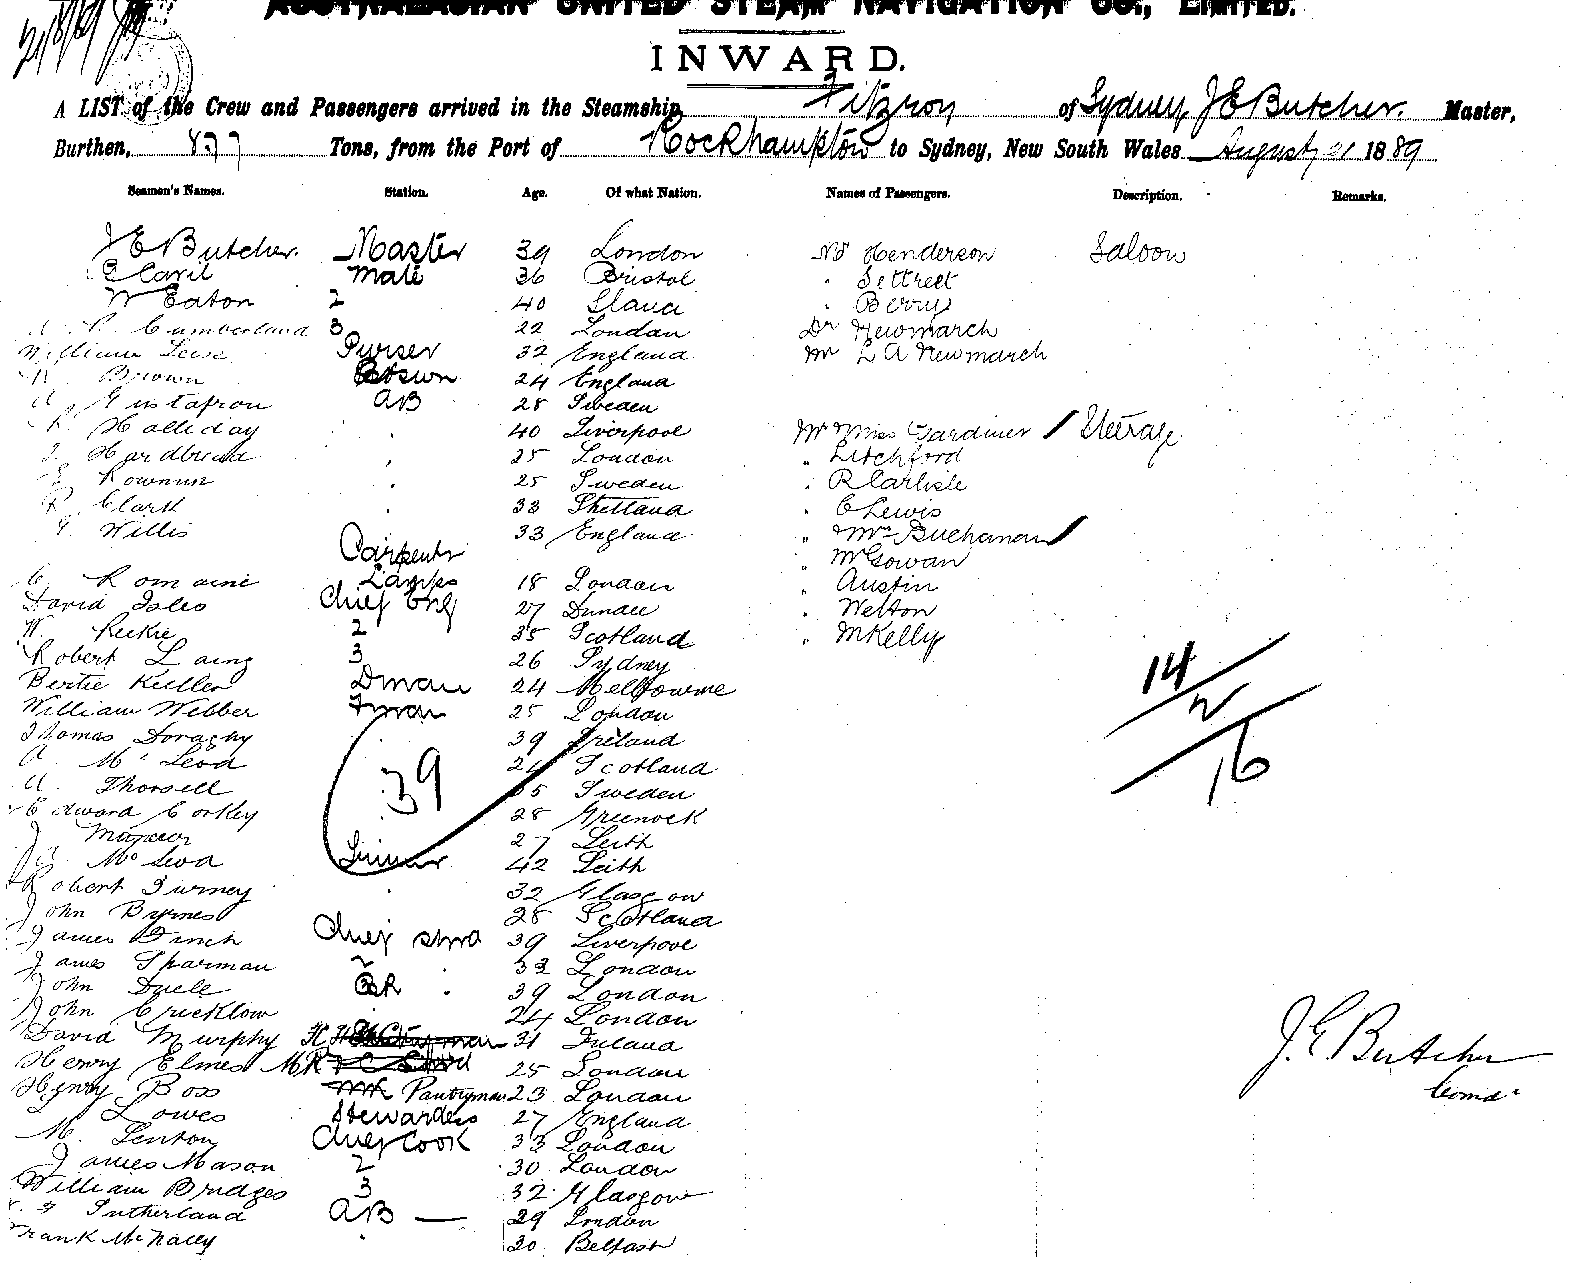 AUSTRALASIAN UNITED STEAM NAVIGATION CO., LIMITED.
INWARD.
A LIST of the Crew and Passengers arrived in the Steamship Fitzroy of Sydney, J E Butcher. Master,
Burthen, 877 Tons, from the Port of Rockhampton to Sydney, New South Wales August 21 1889
Seamen's Names. Station. Age. Of what Nation. Names of Passengers. Description. Remarks.
J E Butcher. Master 39 London Mr Henderson Saloon
Mate 36 Bristol " Settreet
W Eaton 2 40 " Berry
Cumberland 3 22 London Dr Newmarch
William Purser 32 England Mr L A Newmarch
Brown Botswn 24 England
A Gustafson AB 28 Sweden
Halliday 40 Liverpool Mr Miss Gardiner / Steerage
25 London " Litchford
25 Sweden " R Carlisle
R Clark 33 Shetland " C Lewis
Willis 33 England " Mrs Buchanan /
Carpentr " McGowan
C Romaine Lamps 18 London " Austin
David Isles Chief Eng 27 Dundee " Welton
W. Reekie 2 35 Scotland " McKelly
Robert Laing 3 26 Sydney
Bertie Keller Dman 24 Melbourne
William Webber Fman 25 London
Thomas Doraghy 39 Ireland
A. McLeod Scotland
A. Thorsell 35 Sweden
Edward Corkey 28 Greenock
27 Leith
McLeod 42 Leith
Robert Turney 32 Glasgow
John Byrnes 28 Scotland
James Finch Chief Stwd 39 Liverpool
James Sharman 2 33 London
John Duell 39 London
John Cricklow 24 London
David Murphy 31 Ireland
Henry Elmes 25 London
Henry Boss Pantryman 23 London
Lowes Stewardess 27 England
M. Lenton Chief Cook 33 London
James Mason 2 30 London
William Bridges 3 32 Glasgow
Sutherland AB — 29 London
Frank McNally 30 Belfast
39
14
2
16
J. E. Butcher